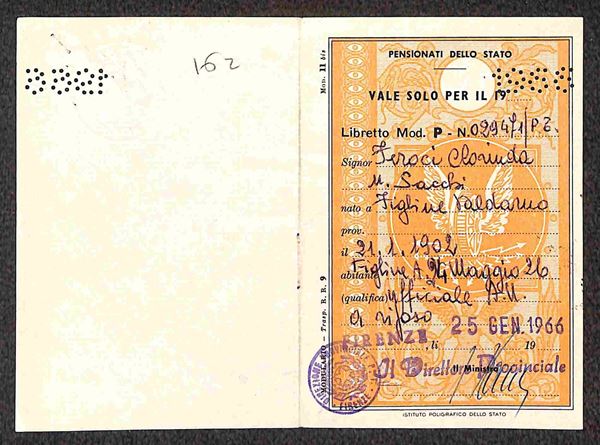 162
Mod. 11 bis
PENSIONATI DELLO STATO
VALE SOLO PER IL 19
Libretto Mod. P - N. 029471/P.E.
Signor Feroci Clorinda
n. Sacchi
nato a Figline Valdarno
prov.
il 21.1.1902
abitante Figline A. 24 Maggio 26
(qualifica) Ufficiale A.U.
a riposo
FIRENZE, li 25 GEN. 1966 19
Il Ministro
Il Direttore Provinciale
MODULARIO - Trasp. B. R. 9
FIRENZE
ISTITUTO POLIGRAFICO DELLO STATO